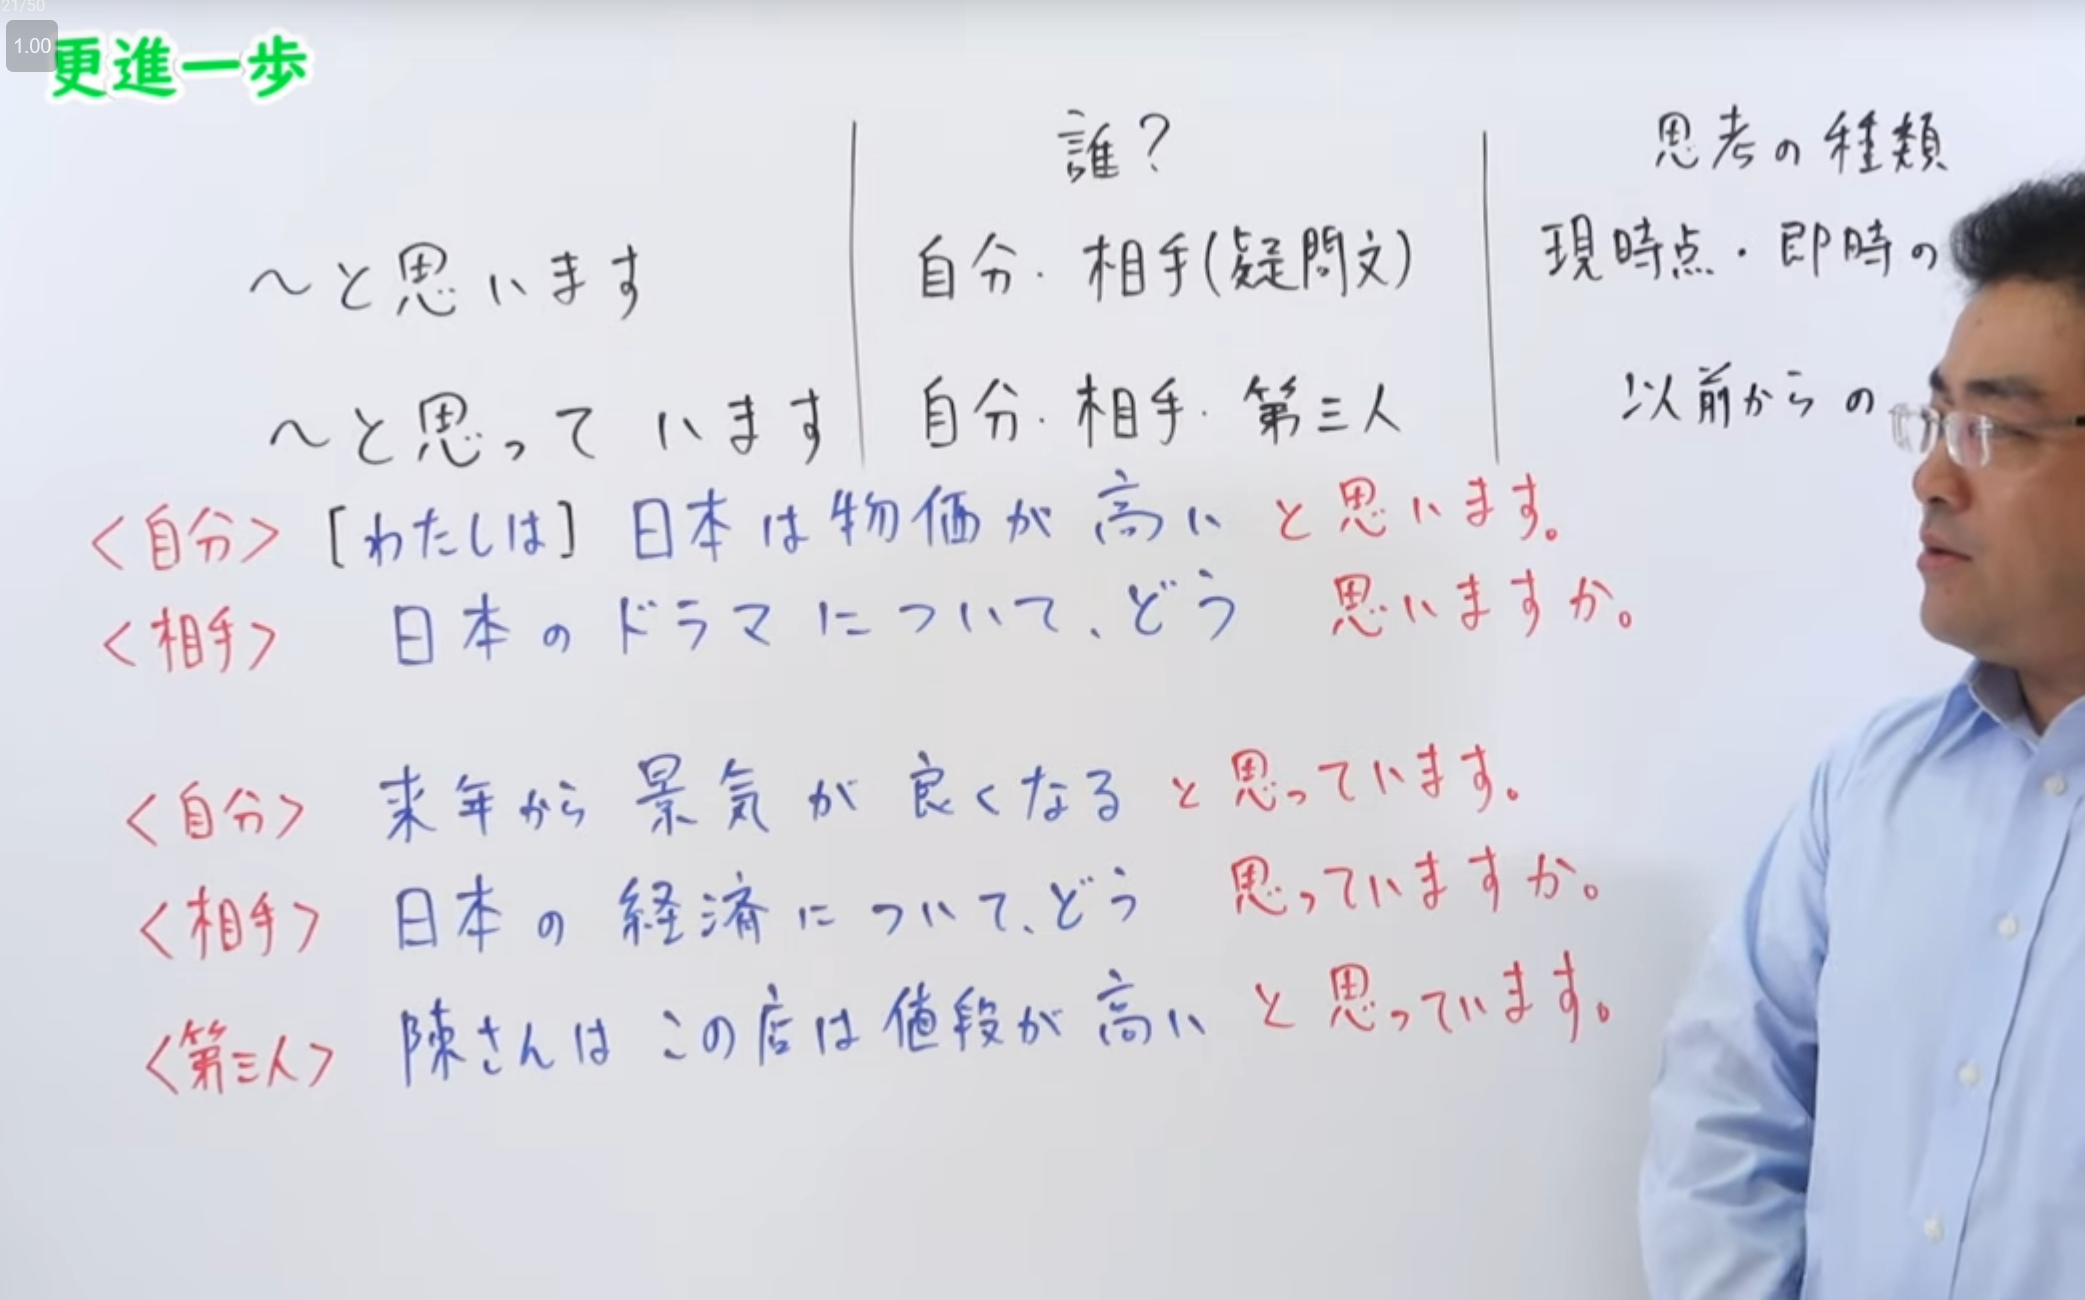 21/50
1.00
更進一歩
誰?
思考の種類
～と思います
自分・相手(疑問文)
現時点・即時の
～と思っています
自分・相手・第三人
以前からの
<自分> [わたしは] 日本は物価が高いと思います。
<相手> 日本のドラマについて、どう 思いますか。
<自分> 来年から景気が良くなると思っています。
<相手> 日本の経済について、どう 思っていますか。
<第三人> 陳さんはこの店は値段が高いと思っています。